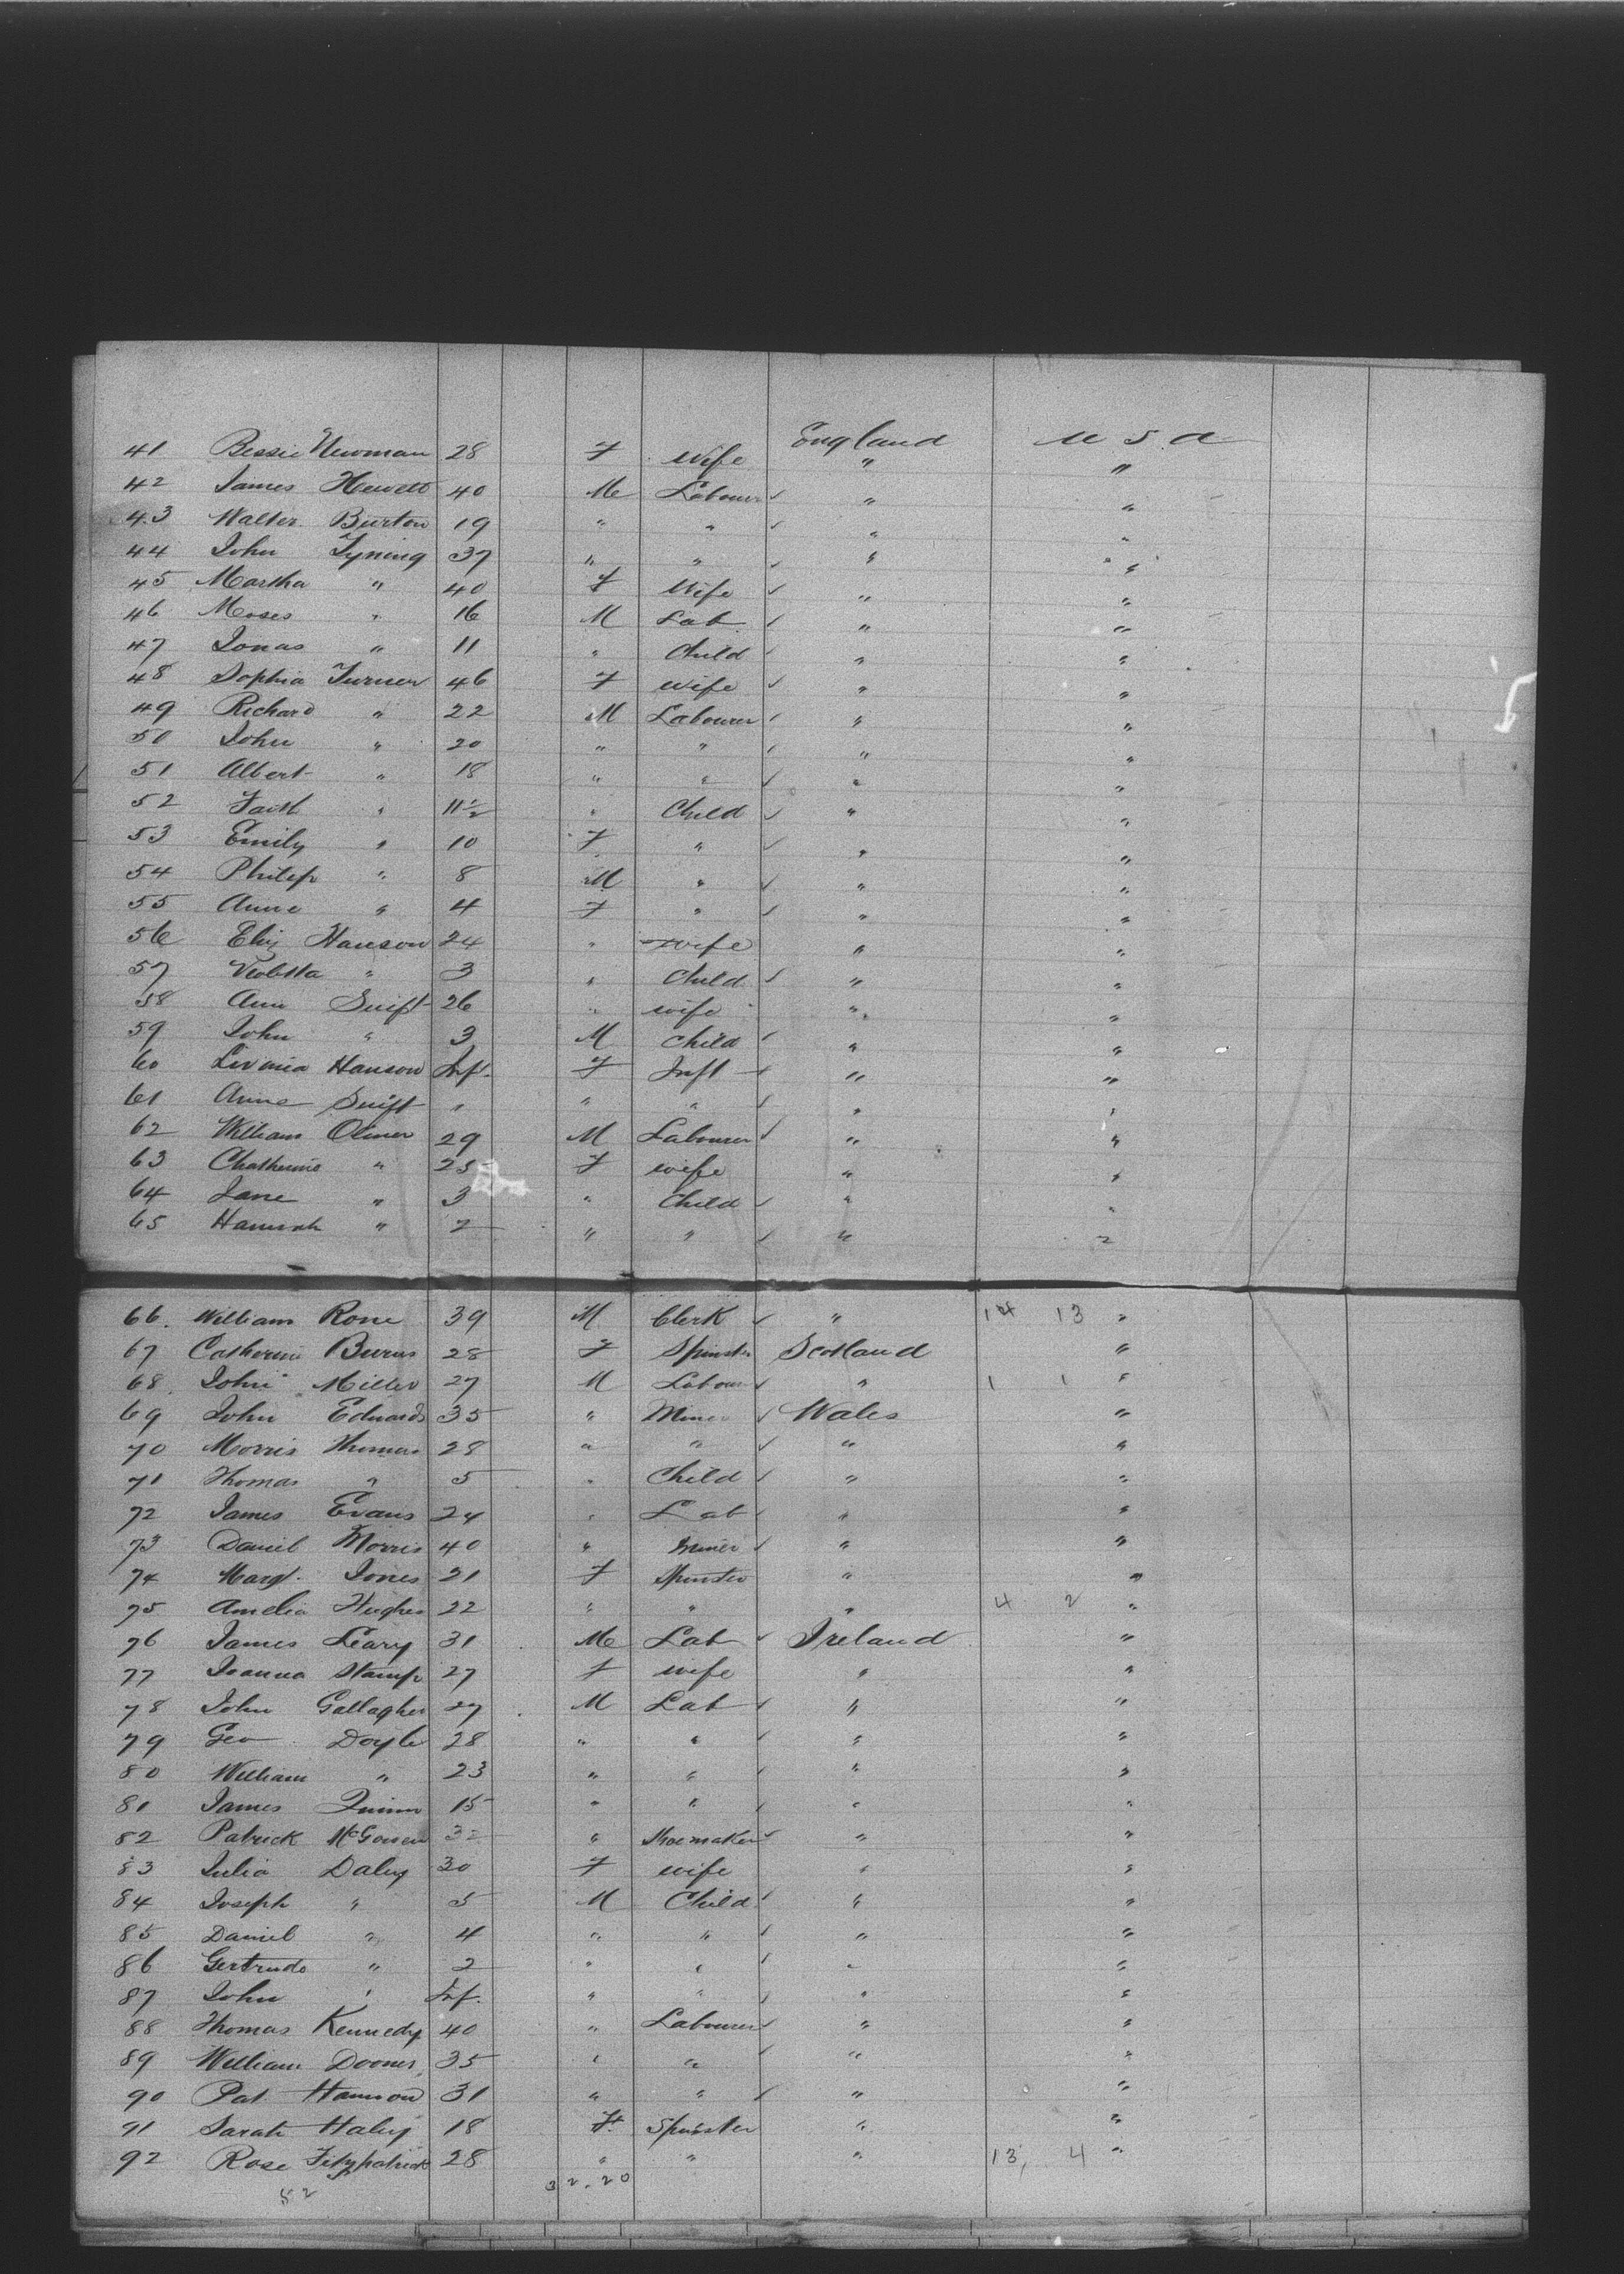 41 Bessie Newman 28 F Wife England U S A
42 James Hewett 40 M Labourer " "
43 Walter Burton 19 " " " "
44 John Tyning 37 " " " "
45 Martha " 40 F Wife " "
46 Moses " 16 M Lab " "
47 Jonas " 11 " Child " "
48 Sophia Turner 46 F Wife " "
49 Richard " 22 M Labourer " "
50 John " 20 " " " "
51 Albert " 18 " " " "
52 " 11½ " Child " "
53 Emily " 10 F " " "
54 Philip " 8 M " " "
55 Anne " 4 F " " "
56 Eliz Hanson 24 " Wife " "
57 " 3 " Child " "
58 Ann Swift 26 " wife " "
59 John " 3 M Child " "
60 Hanson Inf. F Inft " "
61 Anne Swift " " " " "
62 William 29 M Labourer " "
63 Chatherine " 25 F wife " "
64 Jane " 3 " Child " "
65 Hannah " 2 " " " "
66. William Rone 39 M Clerk " 14 13 "
67 Catherine Burns 28 F Spinster Scotland "
68. John Miller 27 M Labour " 1 1 "
69 John Edwards 35 " Miner Wales "
70 Morris Thomas 28 " " " "
71 Thomas " 5 " Child " "
72 James Evans 24 " Lab " "
73 Daniel Morris 40 " Miner " "
74 Margt. Jones 21 F Spinster " "
75 Amelia Hughes 22 " " " 4 2 "
76 James Leary 31 M Lab Ireland "
77 Joanna Stamp 27 F wife " "
78 John Gallagher 27 M Lab " "
79 Geo Doyle 28 " " " "
80 William " 23 " " " "
81 James Quinn 15 " " " "
82 Patrick McGowen 32 " Shoemaker " "
83 Julia Daley 30 F wife " "
84 Joseph " 5 M Child " "
85 Daniel " 4 " " " "
86 Gertrude " 2 " " " "
87 John " Inf. " " " "
88 Thomas Kennedy 40 " Labourer " "
89 William Dooner 35 " " " "
90 Pat Hannon 31 " " " "
91 Sarah Haley 18 F. Spinster " "
92 Rose Fitzpatrick 28 " " " 13, 4 "
52 32. 20